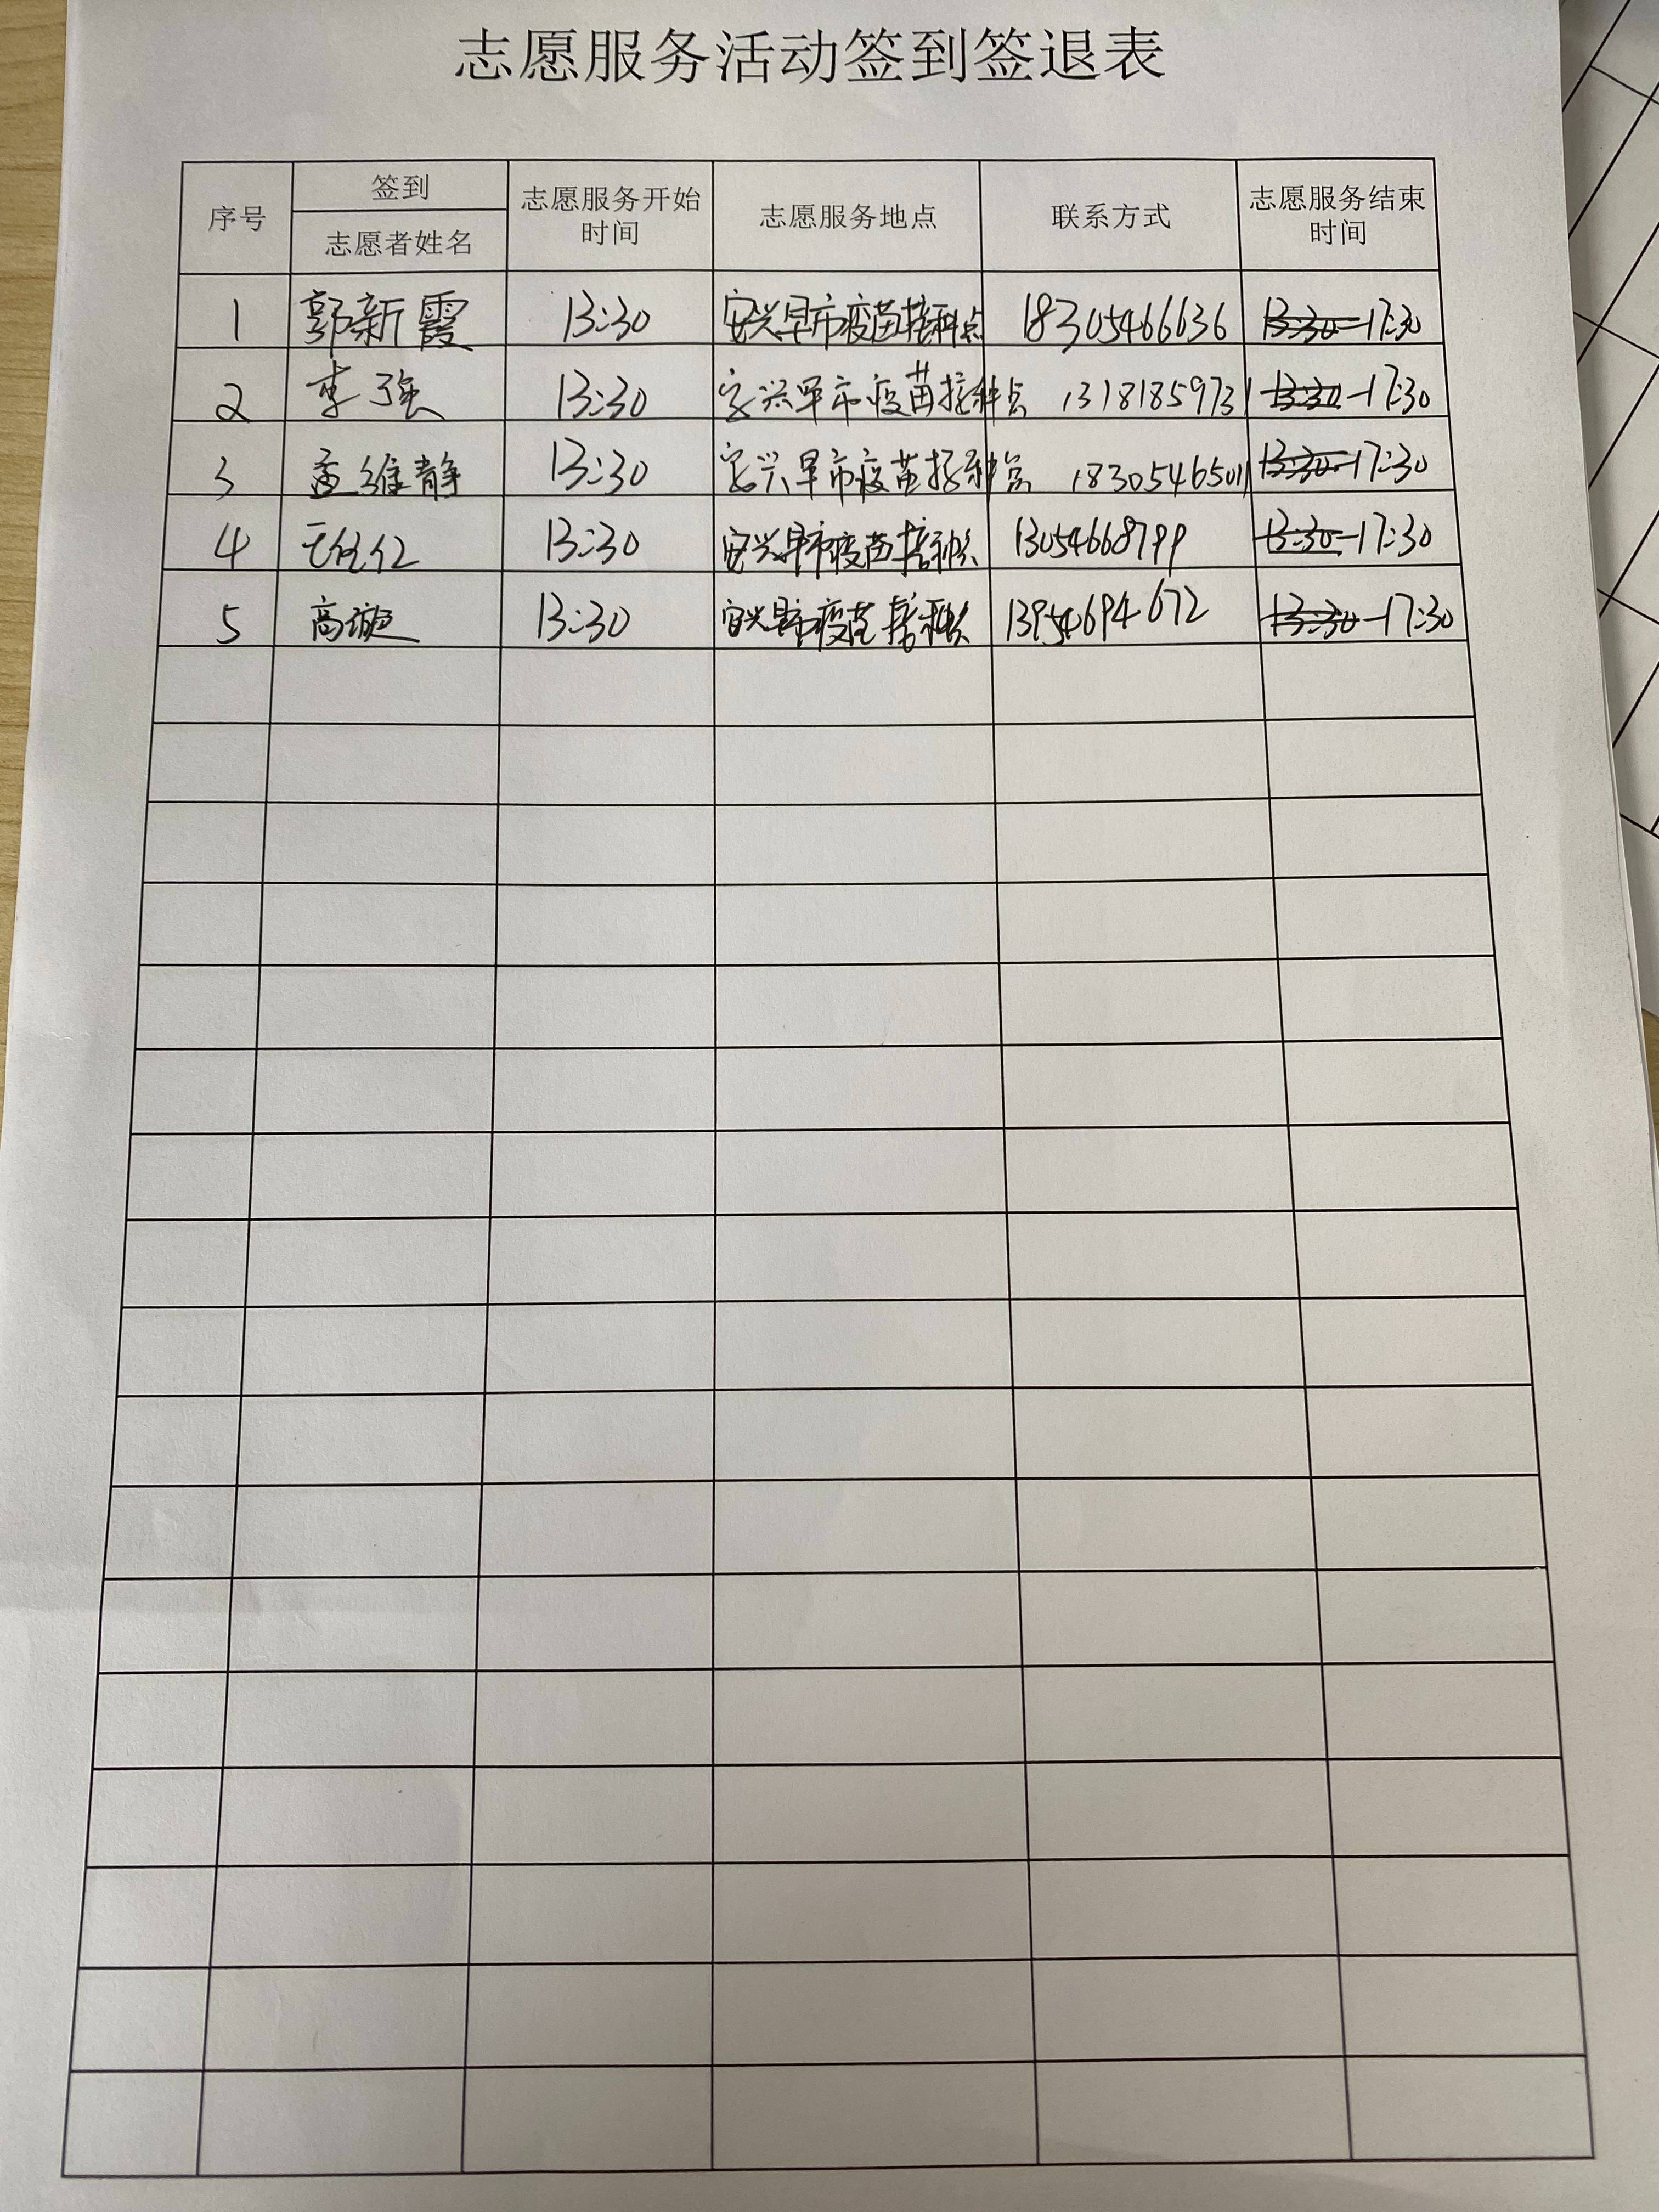 志愿服务活动签到签退表
序号 签到 志愿者姓名 志愿服务开始时间 志愿服务地点 联系方式 志愿服务结束时间
1 郭新霞 13:30 安兴早市疫苗接种点 18305466636 13:30-17:30
2 李强 13:30 安兴早市疫苗接种点 13181859731 13:30-17:30
3 孟维静 13:30 安兴早市疫苗接种点 18305465011 13:30-17:30
4 13:30 安兴早市疫苗接种点 13054668799 13:30-17:30
5 高璇 13:30 安兴早市疫苗接种点 13954694672 13:30-17:30